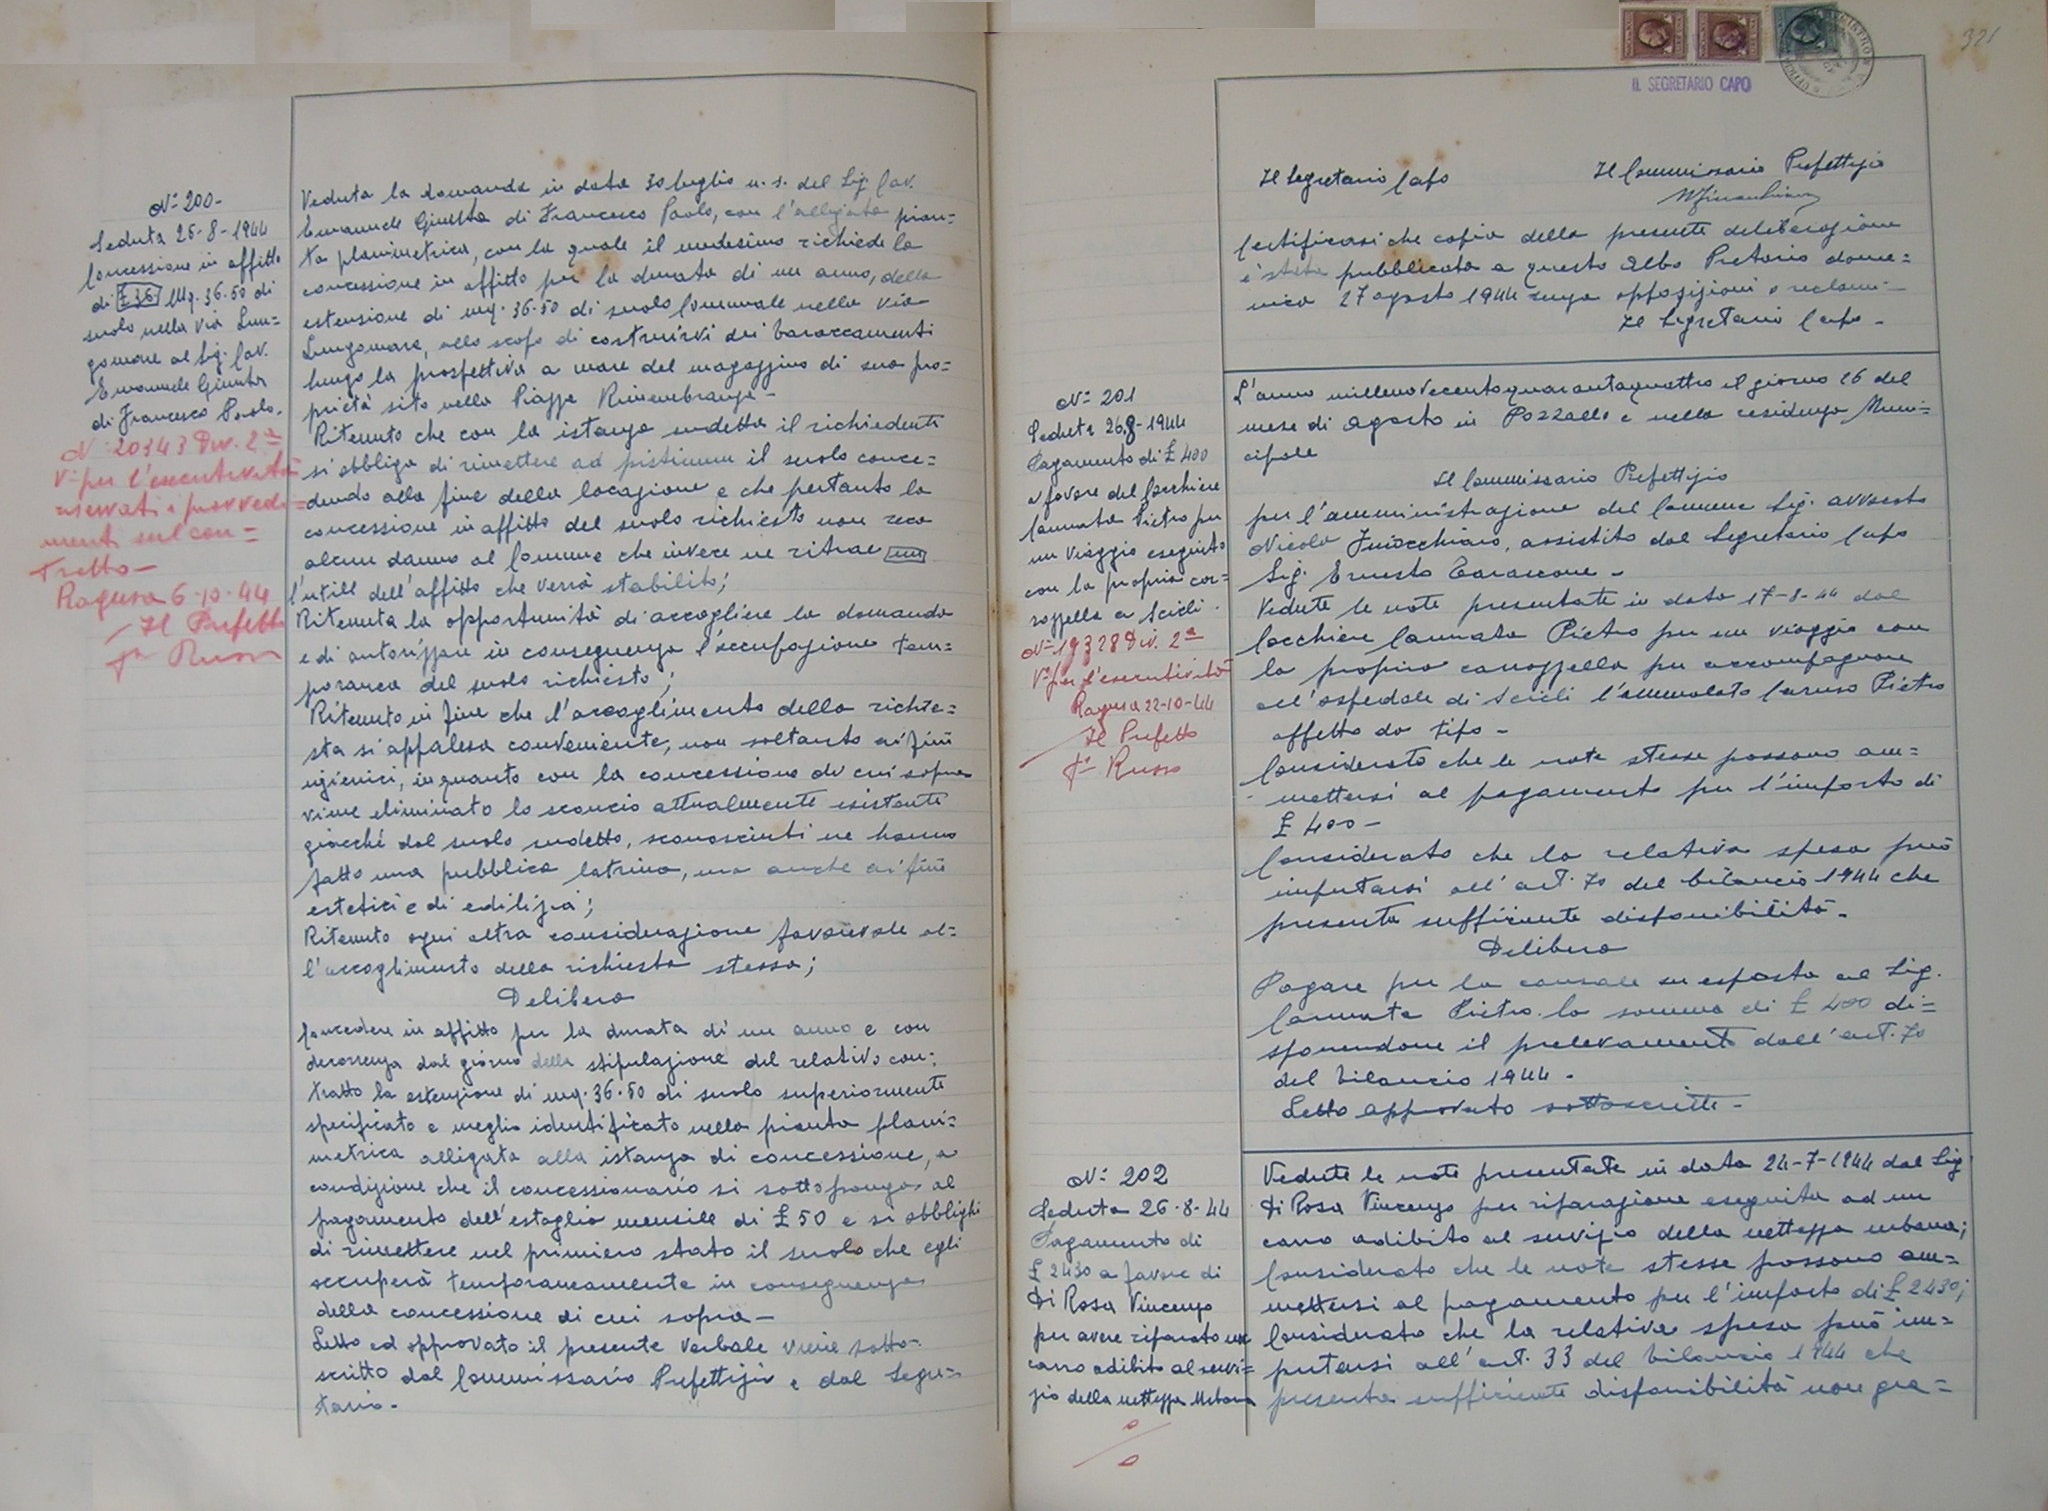 N= 200-
Seduta 26-8-1944
Concessione in affitto
di £ 36 Mq. 36.50 di
suolo nella via Lun=
gomare al Sig. Cav.
Emanuele Giunta
di Francesco Paolo.
N= 20343 Div. 2ª
V= per l'esecutività
riservati i provvedi=
menti sul con=
tratto-
Ragusa 6-10-44
Il Prefetto
Fº Russo
Veduta la domanda in data 30 luglio u. s. del Sig. Cav.
Emanuele Giunta di Francesco Paolo, con l'allegata pian=
ta planimetrica, con la quale il medesimo richiede la
concessione in affitto per la durata di un anno, della
estensione di mq. 36.50 di suolo Comunale nella via
Lungomare, allo scopo di costruirvi dei baraccamenti
lungo la prospettiva a mare del magazzino di sua pro=
prietà sito nella Piazza Rimembranze-
Ritenuto che con la istanza sudetta il richiedente
si obbliga di rimettere ad pistinum il suolo conce=
dendo alla fine della locazione e che pertanto la
concessione in affitto del suolo richiesto non reca
alcun danno al Comune che invece ne ritrae un
l'utile dell'affitto che verrà stabilito;
Ritenuta la opportunità di accogliere la domanda
e di autorizzare in conseguenza l'occupazione tem=
poranea del suolo richiesto;
Ritenuto in fine che l'accoglimento della richie=
sta si appalesa conveniente, non soltanto ai fini
igienici, in quanto con la concessione di cui sopra
viene eliminato lo sconcio attualmente esistente
giacché dal suolo sudetto, sconosciuti ne hanno
fatto una pubblica latrina, ma anche ai fini
estetici e di edilizia;
Ritenuto ogni altra considerazione favorevole al=
l'accoglimento della richiesta stessa;
Delibera
Concedere in affitto per la durata di un anno e con
decorrenza dal giorno della stipulazione del relativo con=
tratto la estenzione di mq. 36.50 di suolo superiormente
specificato e meglio identificato nella pianta plani=
metrica alligata alla istanza di concessione, a
condizione che il concessionario si sottoponga al
pagamento dell'estaglio mensile di £ 50 e si obblighi
di rimettere nel primiero stato il suolo che egli
occuperà temporaneamente in conseguenza
della concessione di cui sopra-
Letto ed approvato il presente verbale viene sotto=
scritto dal Commissario Prefettizio e dal Segre=
tario-
321
IL SEGRETARIO CAPO
Il Segretario Capo
Il Commissario Prefettizio
Certificasi che copia della presente deliberazione
è stata pubblicata a questo Albo Pretorio dome=
nica 27 agosto 1944 senza opposizioni o reclami-
Il Segretario Capo-
N= 201
Seduta 26.8-1944
Pagamento di £ 400
a favore del Cocchiere
Cannata Pietro per
un viaggio eseguito
con la propria car=
rozzella a Scicli.
N= 19328 Div. 2ª
V= per l'esecutività
Ragusa 22-10-44
Il Prefetto
Fº Russo
L'anno millenovecentoquarantaquattro il giorno 26 del
mese di Agosto in Pozzallo e nella residenza Muni=
cipale
Il Commissario Prefettizio
per l'amministrazione del Comune Sig. avvocato
Nicola Finocchiaro, assistito dal Segretario Capo
Sig. Ernesto Tarascone-
Vedute le note presentate in data 17-8-44 dal
Cocchiere Cannata Pietro per un viaggio con
la propria carrozzella per accompagnare
all'ospedale di Scicli l'ammalato Caruso Pietro
affetto da tifo-
Considerato che le note stesse possono am=
mettersi al pagamento per l'importo di
£ 400-
Considerato che la relativa spesa può
imputarsi all'art. 70 del bilancio 1944 che
presenta sufficiente disponibilità-
Delibera
Pagare per la causale su esposta al Sig.
Cannata Pietro la somma di £ 400 di=
sponendone il prelevamento dall'art. 70
del bilancio 1944-
Letto approvato sottoscritto-
N= 202
Seduta 26-8-44
Pagamento di
£ 2430 a favore di
Di Rosa Vincenzo
per avere riparato un
carro adibito al servi=
zio della nettezza Urbana
Vedute le note presentate in data 24-7-1944 dal Sig.
Di Rosa Vincenzo per riparazione eseguita ad un
carro adibito al servizio della nettezza urbana;
Considerato che le note stesse possono am=
mettersi al pagamento per l'importo di £ 2430;
Considerato che la relativa spesa può im=
putarsi all'art. 33 del bilancio 1944 che
presenta sufficiente disponibilità non gra=